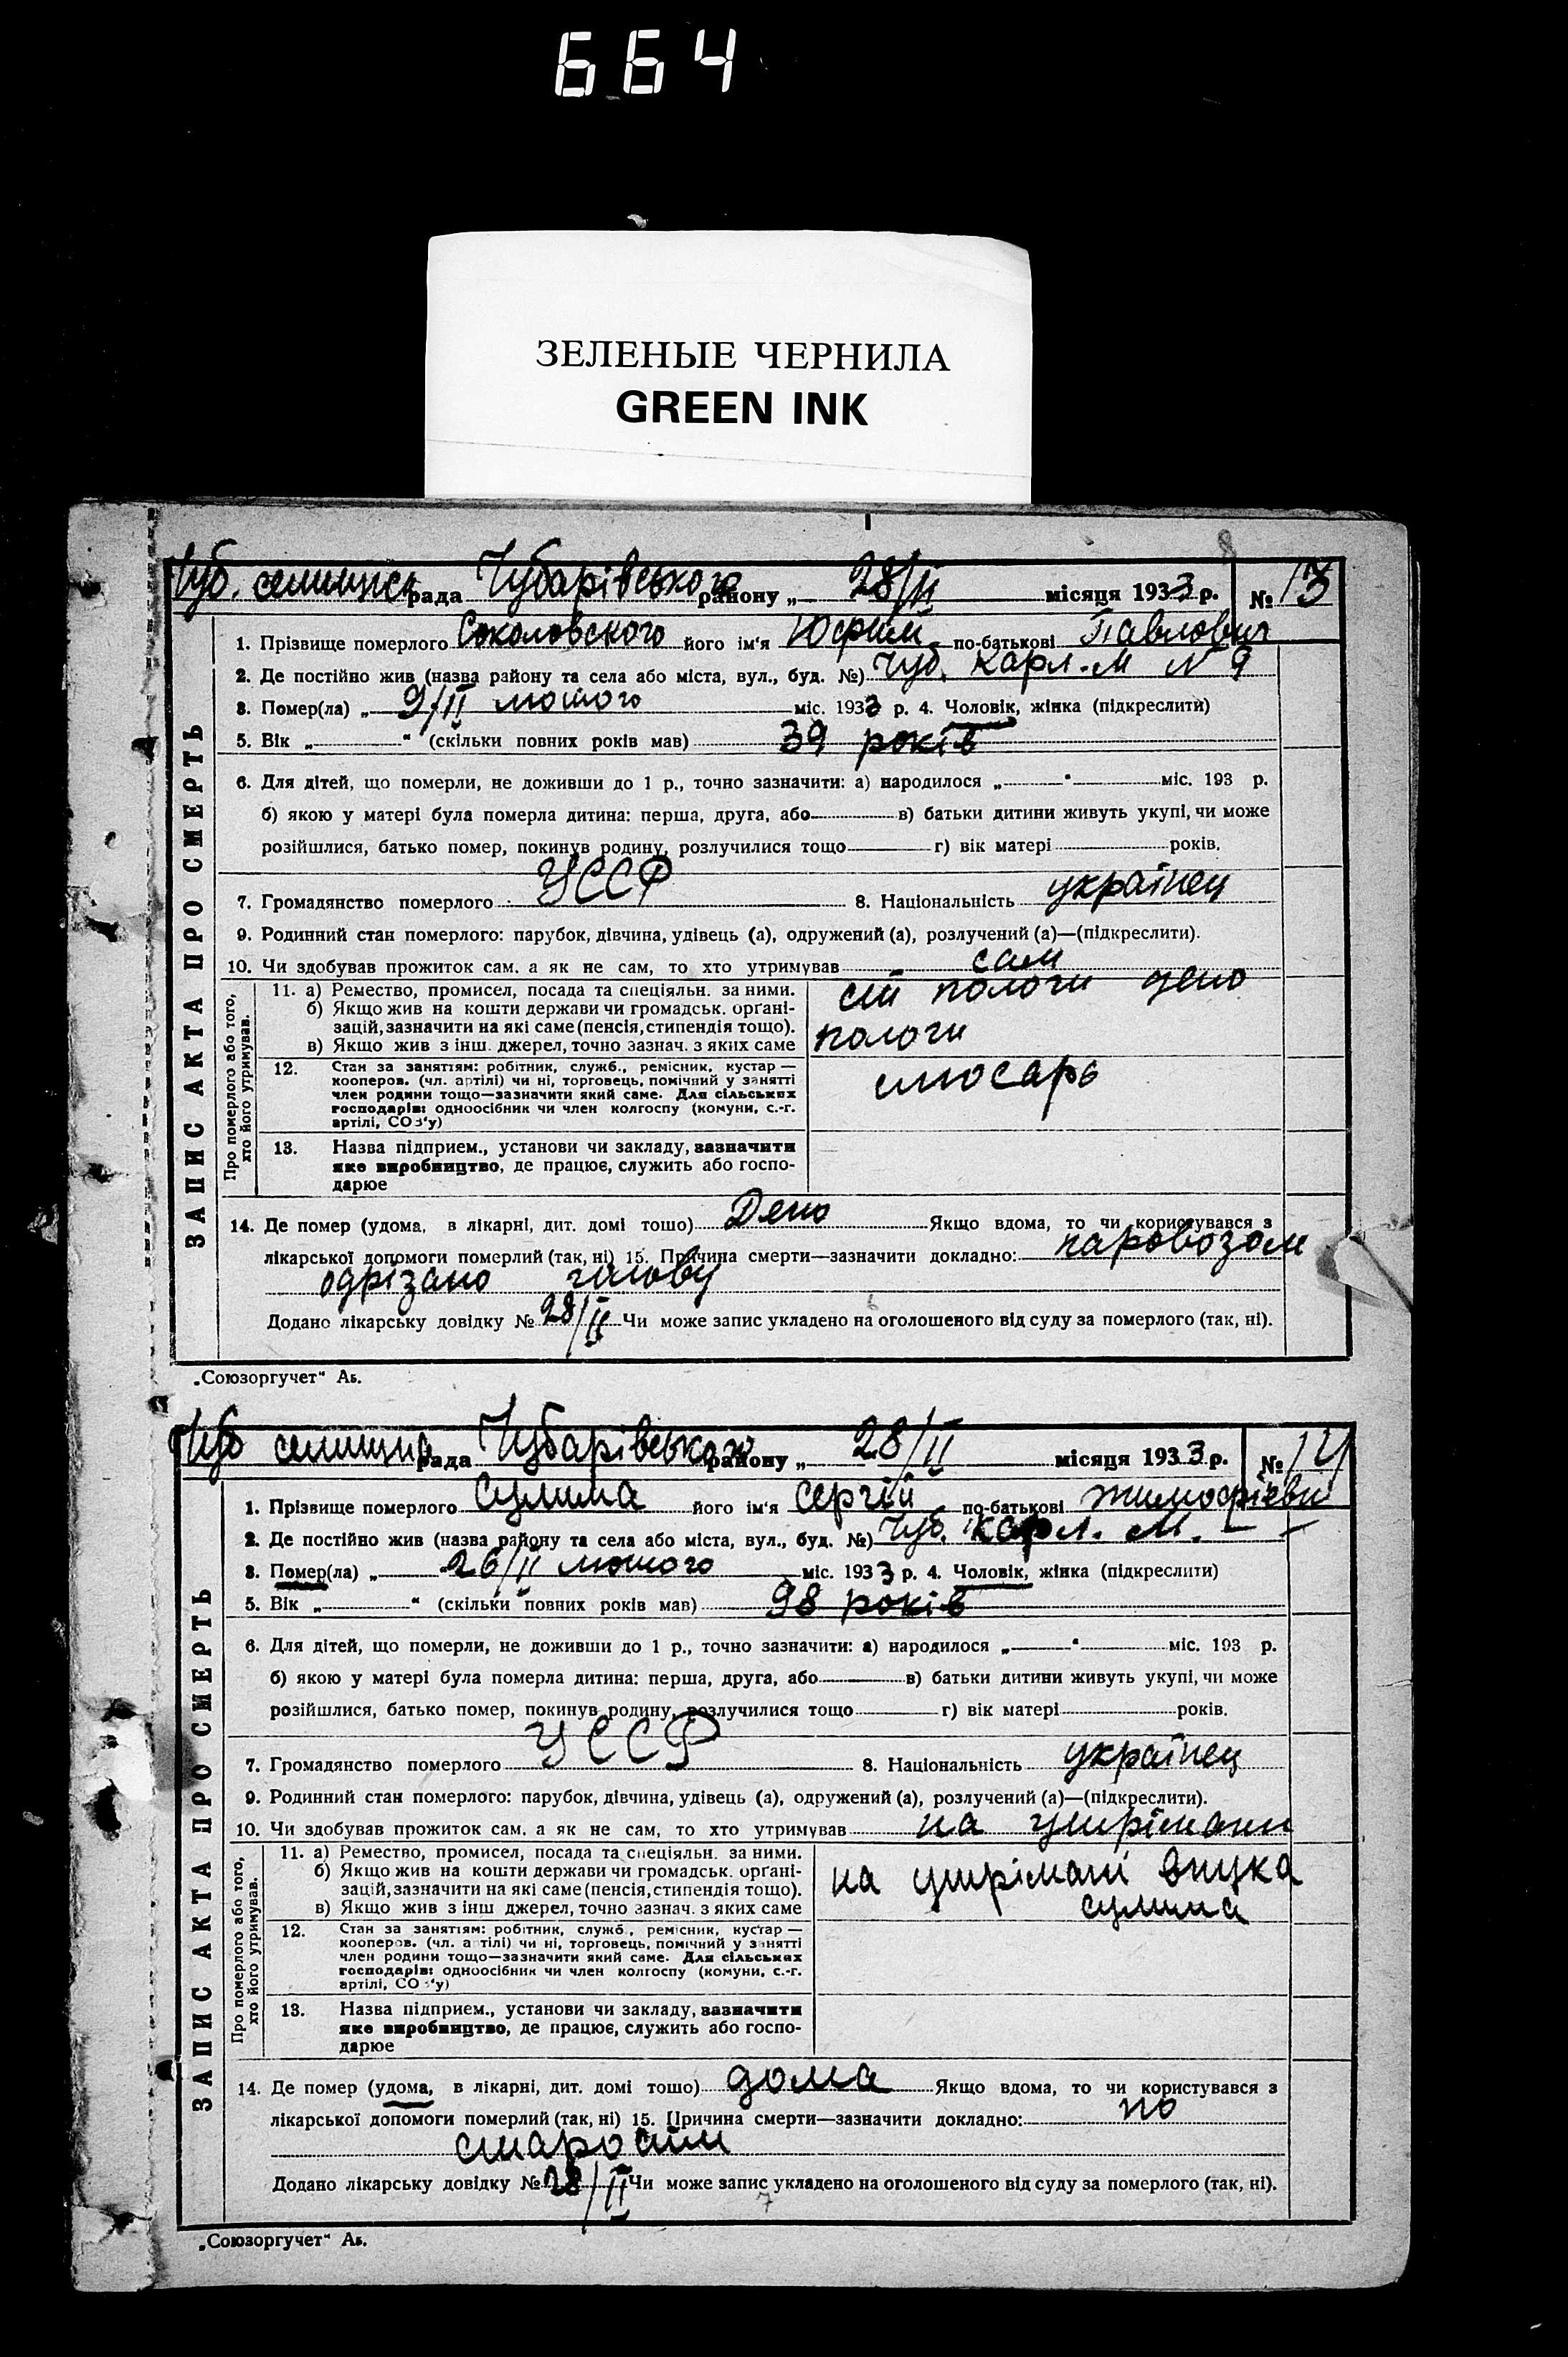 664
ЗЕЛЕНЫЕ ЧЕРНИЛА
GREEN INK
Чуб. селищна рада Чубарівського району „ 28/II місяця 1933 р. № 13
1. Прізвище померлого Соколовского його ім'я Юфим по-батькові Павлович
2. Де постійно жив (назва району та села або міста, вул., буд. №) Чуб. Карл. М N 9
3. Помер(ла) „ 9/II лютого міс. 1933 р. 4. Чоловік, жінка (підкреслити)
5. Вік „ “ (скільки повних років мав) 39 років
6. Для дітей, що померли, не доживши до 1 р., точно зазначити: а) народилося „ “ міс. 193 р.
б) якою у матері була померла дитина: перша, друга, або в) батьки дитини живуть укупі, чи може
розійшлися, батько помер, покинув родину, розлучилися тощо г) вік матері років.
7. Громадянство померлого УССР 8. Національність українец
9. Родинний стан померлого: парубок, дівчина, удівець (а), одружений (а), розлучений (а)—(підкреслити).
10. Чи здобував прожиток сам. а як не сам, то хто утримував сам
ЗАПИС АКТА ПРО СМЕРТЬ
Про померлого або того, хто його утримував.
11. а) Ремество, промисел, посада та спеціяльн. за ними.
б) Якщо жив на кошти держави чи громадськ. орґані-
зацій, зазначити на які саме (пенсія, стипендія тощо).
в) Якщо жив з інш. джерел, точно зазнач. з яких саме
пологи депо
пологи
12. Стан за занятіям: робітник, служб., ремісник, кустар —
кооперов. (чл. артілі) чи ні, торговець, помічний у занятті
член родини тощо—зазначити який саме. Для сільських
господарів: одноосібник чи член колгоспу (комуни, с.-г.
артілі, СОЗ'у)
слюсарь
13. Назва підприєм., установи чи закладу, зазначити
яке виробництво, де працює, служить або госпо-
дарює
14. Де помер (удома, в лікарні, дит. домі тошо) Депо Якщо вдома, то чи користувався з
лікарської допомоги померлий (так, ні) 15. Причина смерти—зазначити докладно: паровозом
одрізано голову
Додано лікарську довідку № 28/II Чи може запис укладено на оголошеного від суду за померлого (так, ні).
„Союзоргучет“ Аь.
Чуб селищна рада Чубарівського району „ 28/II місяця 1933 р. № 14
1. Прізвище померлого Сулима його ім'я Сергій по-батькові Тимофієви
2. Де постійно жив (назва району та села або міста, вул., буд. №) Чуб. Карл. М. — —
3. Помер(ла) „ 26/II лютого міс. 1933 р. 4. Чоловік, жінка (підкреслити)
5. Вік „ “ (скільки повних років мав) 98 років
6. Для дітей, що померли, не доживши до 1 р., точно зазначити: а) народилося „ “ міс. 193 р.
б) якою у матері була померла дитина: перша, друга, або в) батьки дитини живуть укупі, чи може
розійшлися, батько помер, покинув родину, розлучилися тощо г) вік матері років.
7. Громадянство померлого УССР 8. Національність українец
9. Родинний стан померлого: парубок, дівчина, удівець (а), одружений (а), розлучений (а)—(підкреслити).
10. Чи здобував прожиток сам. а як не сам, то хто утримував на утріманн
ЗАПИС АКТА ПРО СМЕРТЬ
Про померлого або того, хто його утримував.
11. а) Ремество, промисел, посада та спеціяльн. за ними.
б) Якщо жив на кошти держави чи громадськ. орґані-
зацій, зазначити на які саме (пенсія, стипендія тощо).
в) Якщо жив з інш джерел, точно зазнач. з яких саме
на утрімані внука
сулима
12. Стан за занятіям: робітник, служб., ремісник, кустар —
кооперов. (чл. артілі) чи ні, торговець, помічний у занятті
член родини тощо—зазначити який саме. Для сільських
господарів: одноосібник чи член колгоспу (комуни, с.-г.
артілі, СОЗ'у)
13. Назва підприєм., установи чи закладу, зазначити
яке виробництво, де працює, служить або госпо-
дарює
14. Де помер (удома, в лікарні, дит. домі тошо) дома Якщо вдома, то чи користувався з
лікарської допомоги померлий (так, ні) 15. Причина смерти—зазначити докладно: по
старости
Додано лікарську довідку № 28/II Чи може запис укладено на оголошеного від суду за померлого (так, ні).
7
„Союзоргучет“ Аь.